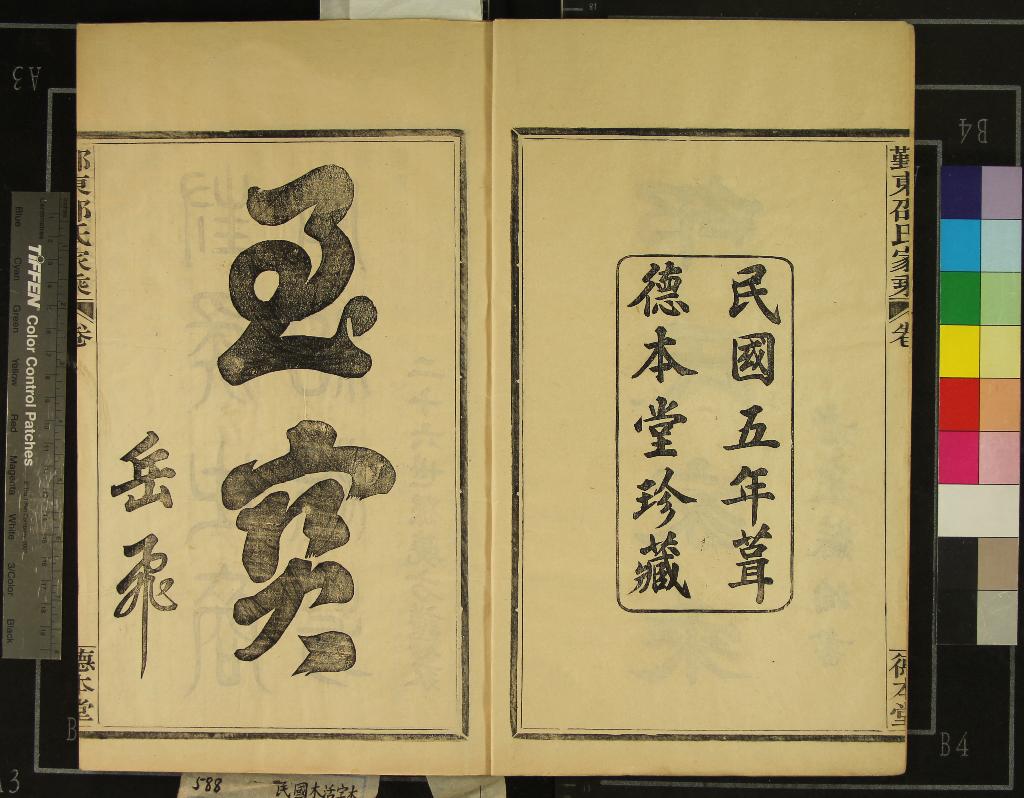 民國五年葺
德本堂珍藏
東邵氏家乘
卷
德本堂
東邵氏家乘
卷
德本堂
岳飛
TIFFEN Color Control Patches
Blue Cyan Green Yellow Red Magenta White 3/Color Black
A3
B4
B4
588
民國木活字本